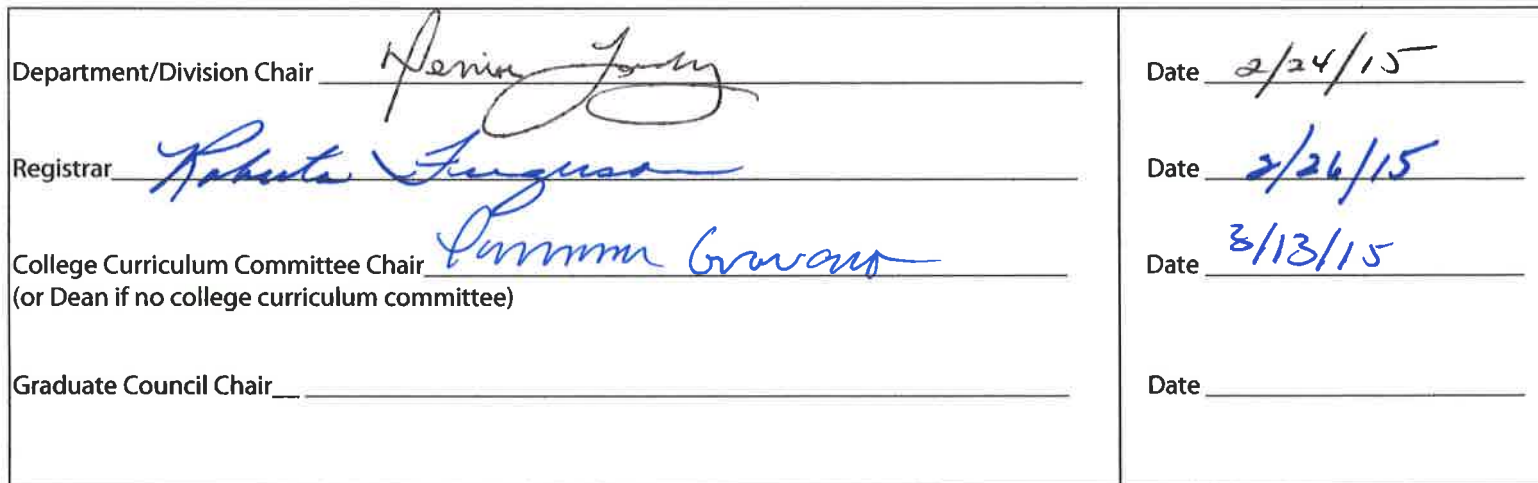 Department/Division Chair Date 2/24/15
Registrar Roberta Ferguson Date 2/26/15
College Curriculum Committee Chair Date 3/13/15
(or Dean if no college curriculum committee)
Graduate Council Chair Date